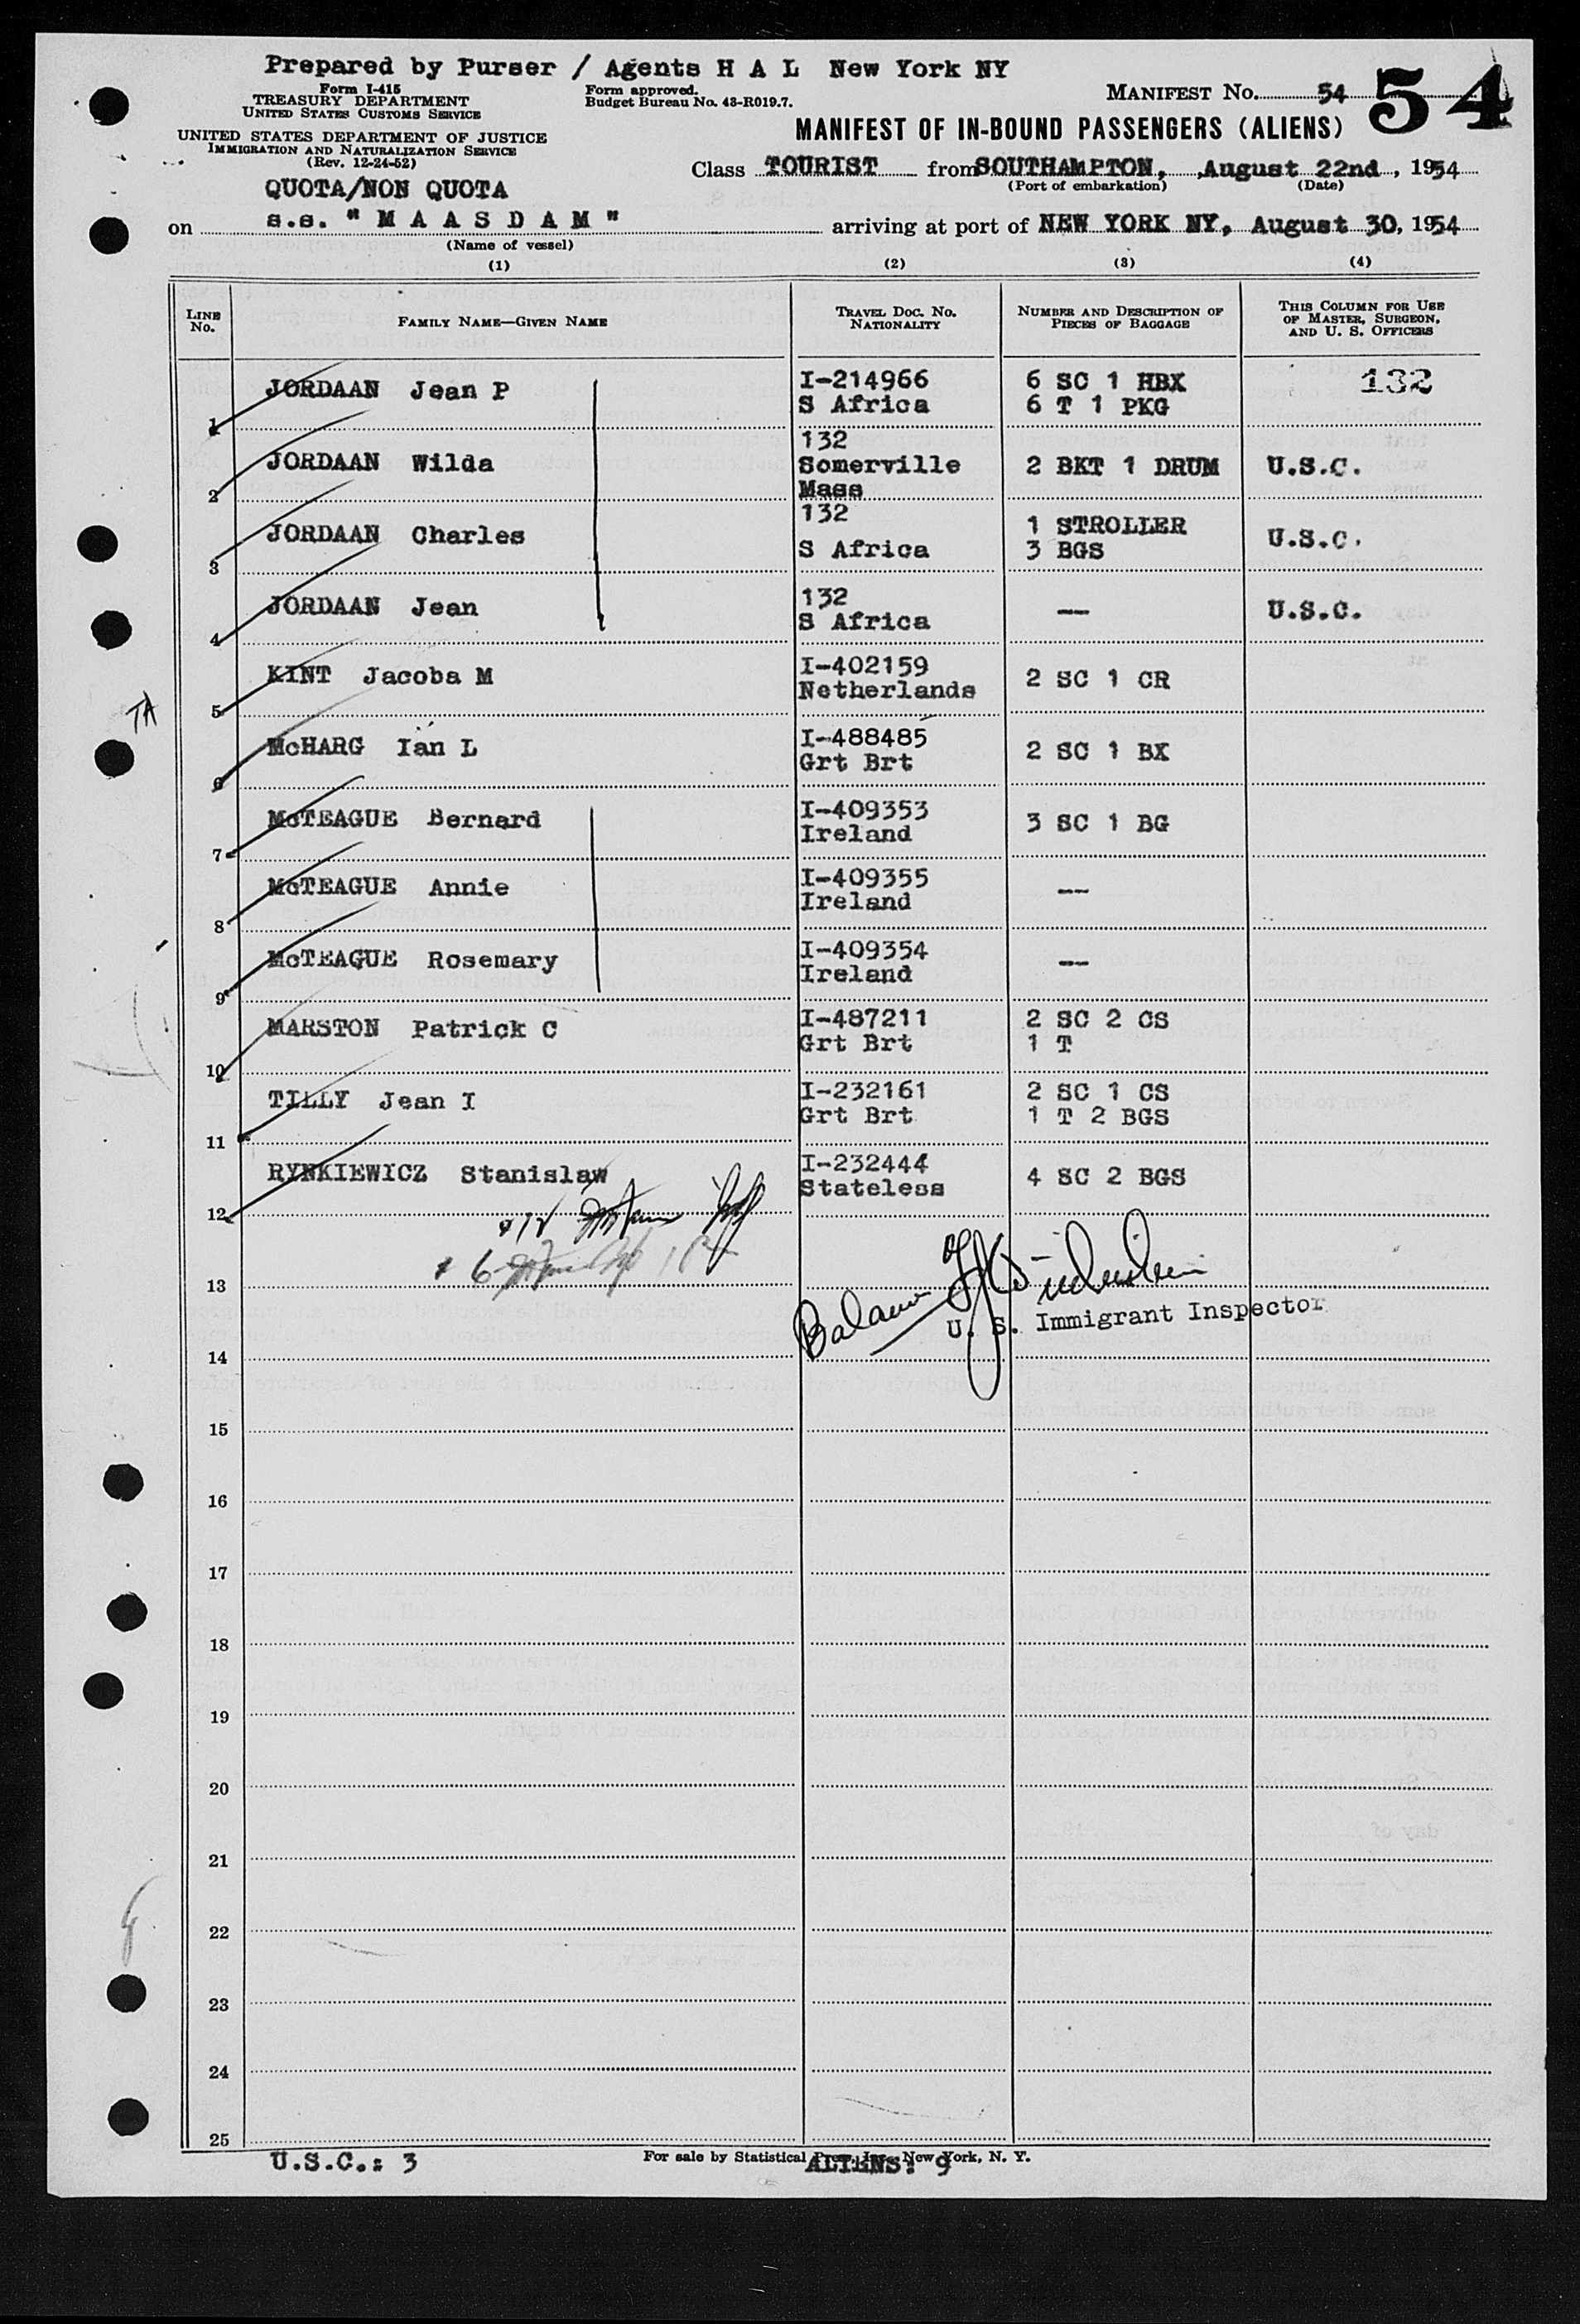 Prepared by Purser / Agents H A L New York NY
Form I-415
TREASURY DEPARTMENT
UNITED STATES CUSTOMS SERVICE
Form approved.
Budget Bureau No. 43-R019.7.
MANIFEST No. 54
54
UNITED STATES DEPARTMENT OF JUSTICE
IMMIGRATION AND NATURALIZATION SERVICE
(Rev. 12-24-52)
MANIFEST OF IN-BOUND PASSENGERS (ALIENS)
QUOTA/NON QUOTA
Class TOURIST from SOUTHAMPTON, August 22nd, 1954
(Port of embarkation) (Date)
on s.s. " M A A S D A M " arriving at port of NEW YORK NY, August 30, 1954
(Name of vessel)
(1) (2) (3) (4)
LINE No. FAMILY NAME—GIVEN NAME TRAVEL DOC. NO. NATIONALITY NUMBER AND DESCRIPTION OF PIECES OF BAGGAGE THIS COLUMN FOR USE OF MASTER, SURGEON, AND U. S. OFFICERS
1 JORDAAN Jean P I-214966 S Africa 6 SC 1 HBX 6 T 1 PKG 132
2 JORDAAN Wilda 132 Somerville Mass 2 BKT 1 DRUM U.S.C.
3 JORDAAN Charles 132 S Africa 1 STROLLER 3 BGS U.S.C.
4 JORDAAN Jean 132 S Africa -- U.S.C.
5 KINT Jacoba M I-402159 Netherlands 2 SC 1 CR
TA
6 McHARG Ian L I-488485 Grt Brt 2 SC 1 BX
7 McTEAGUE Bernard I-409353 Ireland 3 SC 1 BG
8 McTEAGUE Annie I-409355 Ireland --
9 McTEAGUE Rosemary I-409354 Ireland --
10 MARSTON Patrick C I-487211 Grt Brt 2 SC 2 CS 1 T
11 TILLY Jean I I-232161 Grt Brt 2 SC 1 CS 1 T 2 BGS
12 RYNKIEWICZ Stanislaw I-232444 Stateless 4 SC 2 BGS
13
U. S. Immigrant Inspector
14
15
16
17
18
19
20
21
22
23
24
25
U.S.C.: 3 For sale by Statistical Press, Inc., New York, N. Y. ALIENS: 9